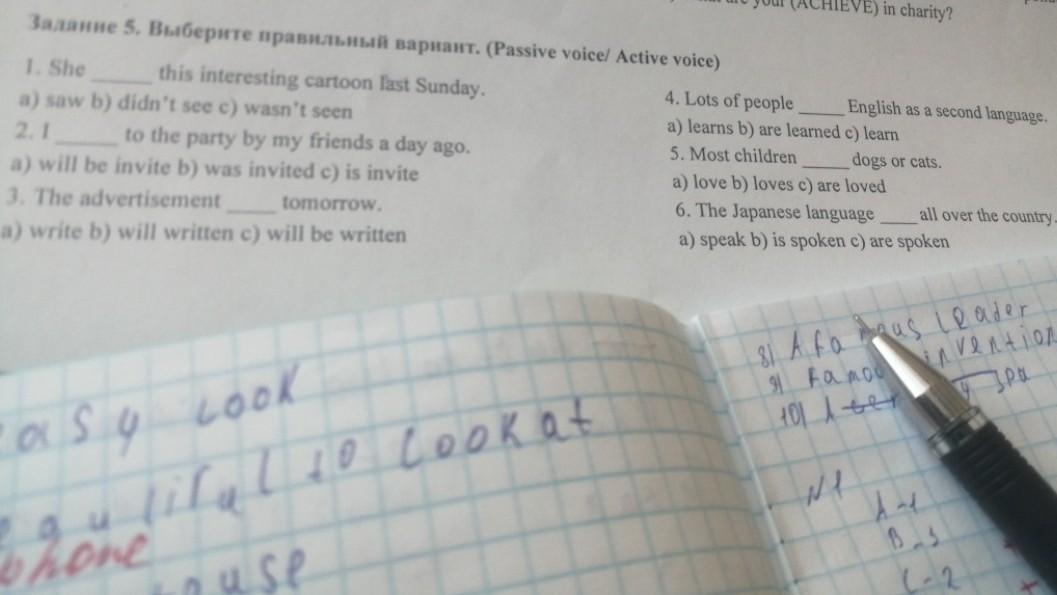 your (ACHIEVE) in charity?
Задание 5. Выберите правильный вариант. (Passive voice/ Active voice)
1. She _____ this interesting cartoon last Sunday.
a) saw b) didn't see c) wasn't seen
2. I _____ to the party by my friends a day ago.
a) will be invite b) was invited c) is invite
3. The advertisement ____ tomorrow.
a) write b) will written c) will be written
4. Lots of people ____ English as a second language.
a) learns b) are learned c) learn
5. Most children ____ dogs or cats.
a) love b) loves c) are loved
6. The Japanese language ____ all over the country.
a) speak b) is spoken c) are spoken
look
to look at
phone
8) A famous leader
9) invention
10) A
N1
A-1
B-3
C-2